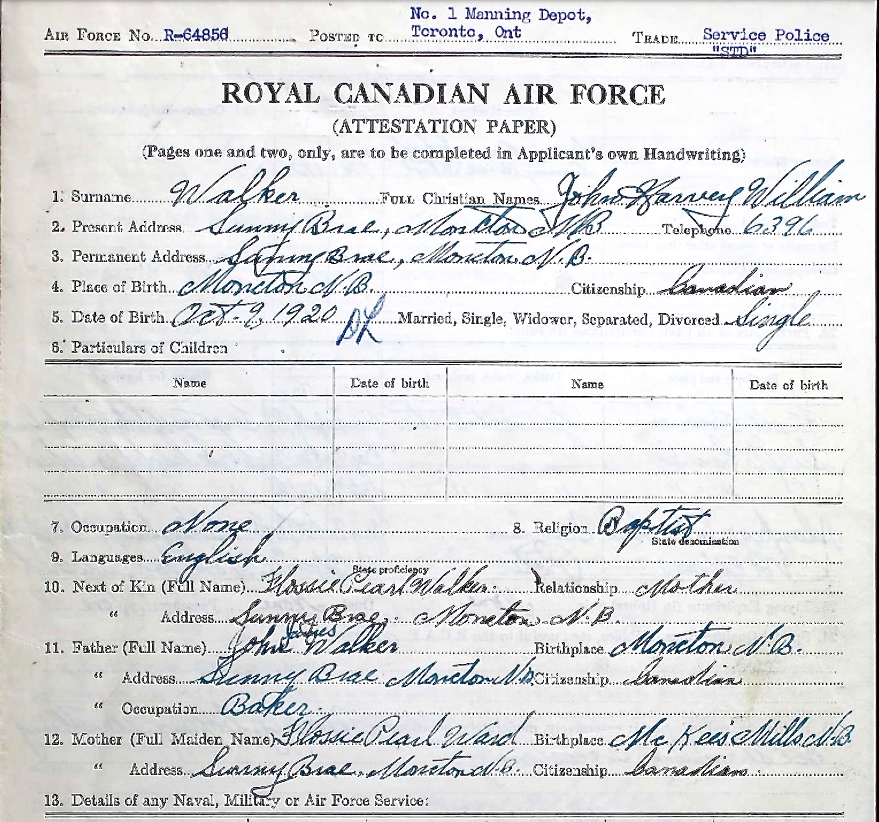 No. 1 Manning Depot,
AIR FORCE No. R-64856 POSTED TO Toronto, Ont TRADE Service Police
"STD"
ROYAL CANADIAN AIR FORCE
(ATTESTATION PAPER)
(Pages one and two, only, are to be completed in Applicant's own Handwriting)
1. Surname Walker FULL Christian Names John Harvey William
2. Present Address Sunny Brae, Moncton N.B. Telephone 6396
3. Permanent Address Sunny Brae, Moncton N.B.
4. Place of Birth Moncton N.B. Citizenship Canadian
5. Date of Birth Oct-9, 1920 Married, Single, Widower, Separated, Divorced Single
6. Particulars of Children
Name Date of birth Name Date of birth
7. Occupation None 8. Religion Baptist
State denomination
9. Languages English
State proficiency
10. Next of Kin (Full Name) Flossie Pearl Walker Relationship Mother
" Address Sunny Brae, Moncton N.B.
11. Father (Full Name) John James Walker Birthplace Moncton N.B.
" Address Sunny Brae Moncton N.B. Citizenship Canadian
" Occupation Baker
12. Mother (Full Maiden Name) Flossie Pearl Ward Birthplace Mc Kees Mills N.B
" Address Sunny Brae, Moncton N.B. Citizenship Canadian
13. Details of any Naval, Military or Air Force Service: